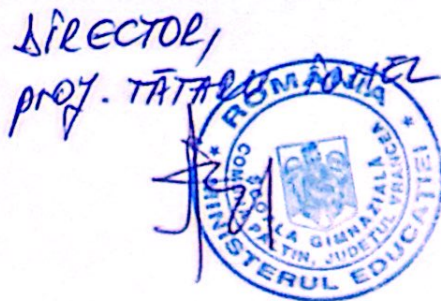 DIRECTOR,
prof. TĂTARU
ROMÂNIA
MINISTERUL EDUCAȚIEI
ȘCOALA GIMNAZIALĂ
COMUNA PALTIN, JUDEȚUL VRANCEA